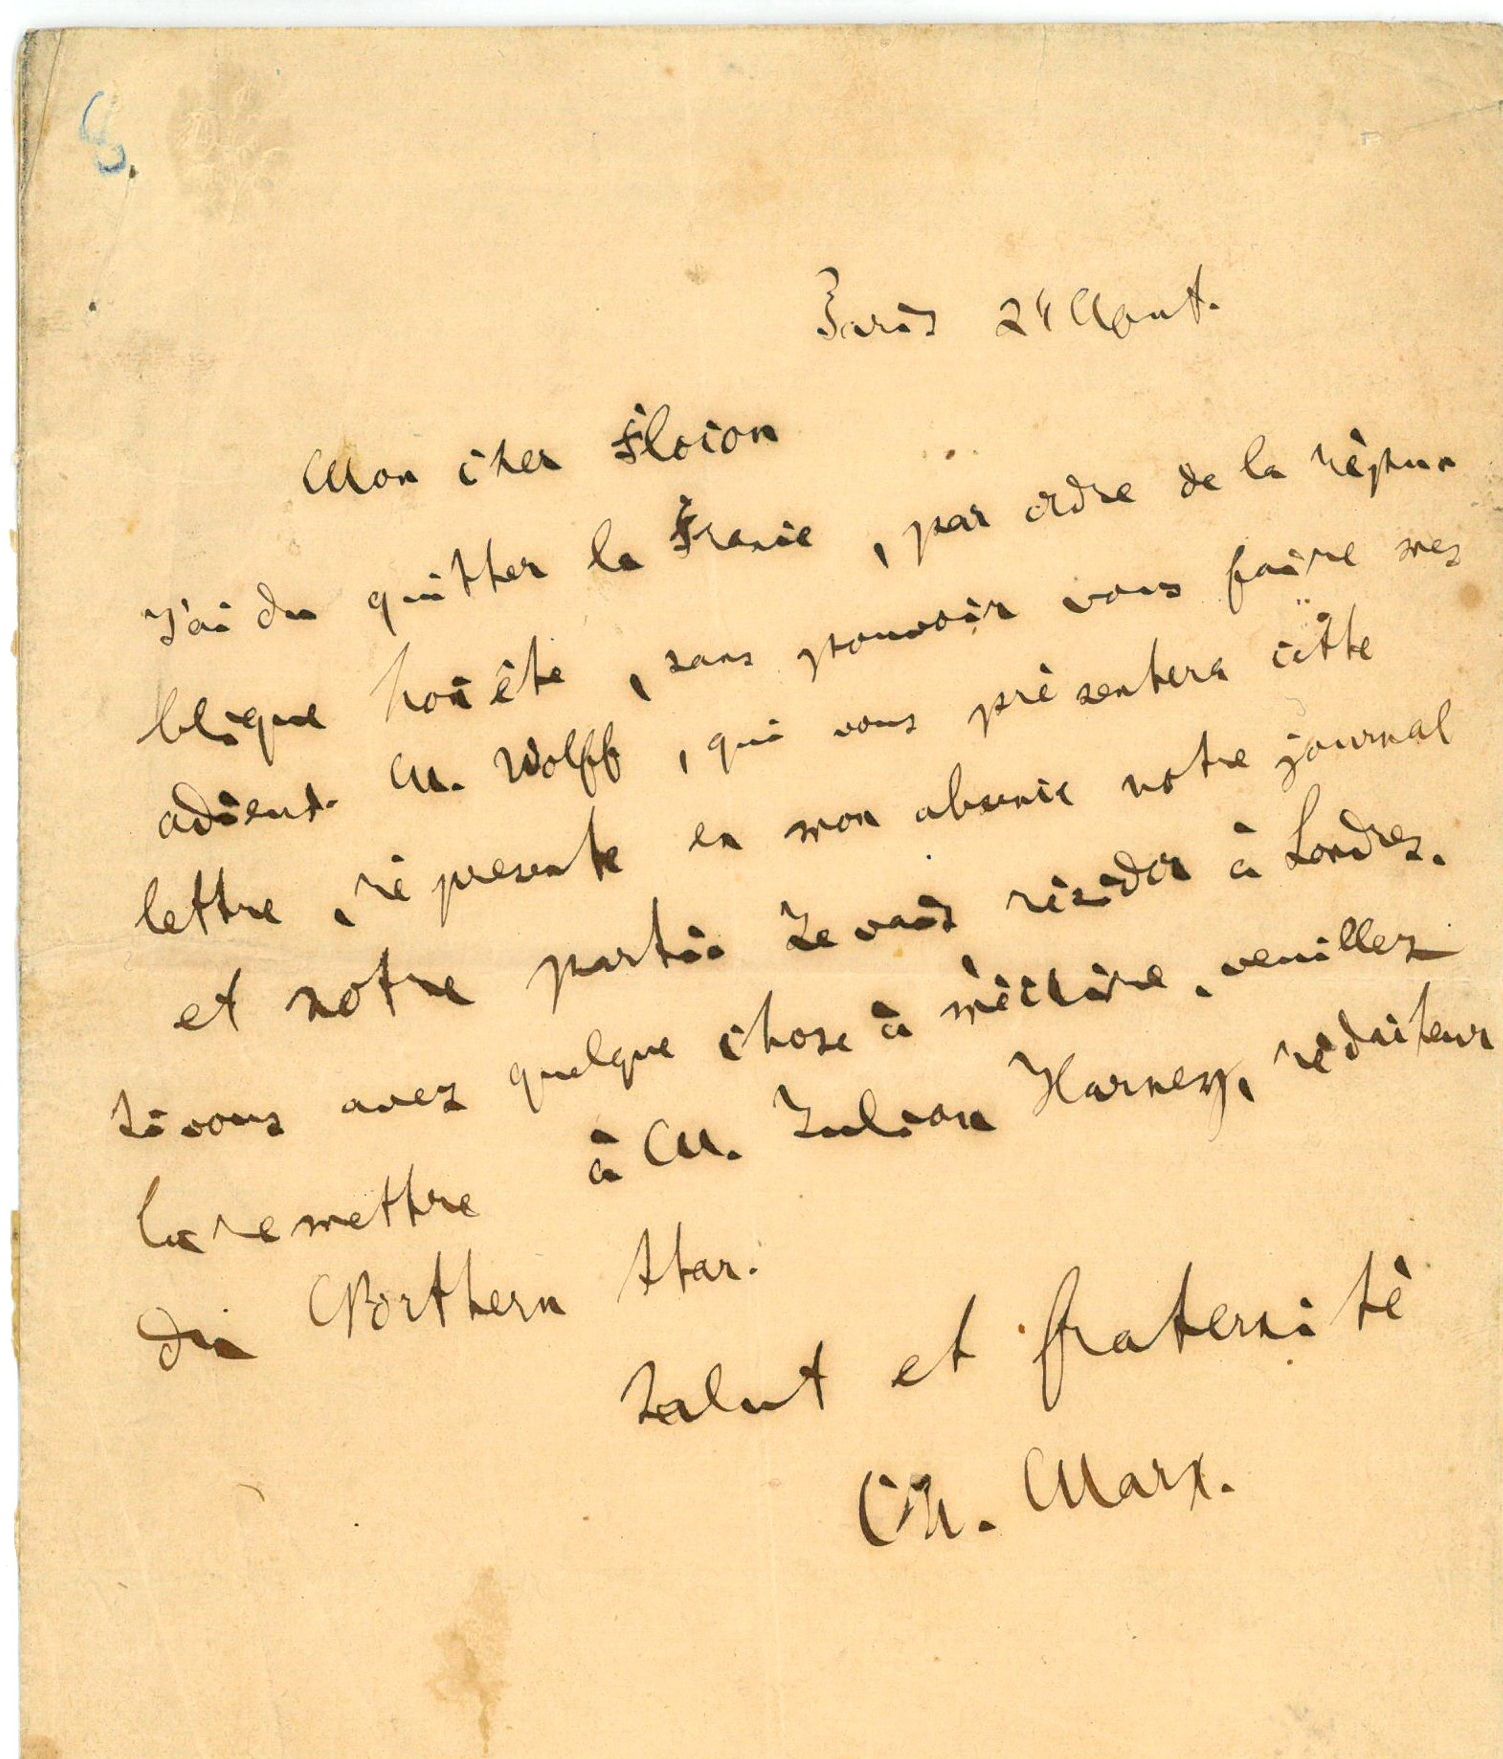 Paris 24 Aout.
Mon cher Flocon
J'ai du quitter la France, par ordre de la répu
blique honête, sans pouvoir vous faire mes
adieux. M. Wolff, qui vous présentera cette
lettre, réprésente en mon absence notre journal
et notre parti. Je vais résider à Londres.
Si vous avez quelque chose à m'écrire, veuillez
le remettre à M. Julian Harney, rédacteur
du Northern Star.
Salut et fraternité
Ch. Marx.